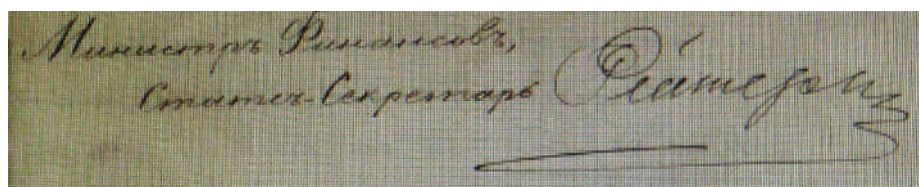 Министръ Финансовъ,
Статсъ-Секретарь Рейтернъ